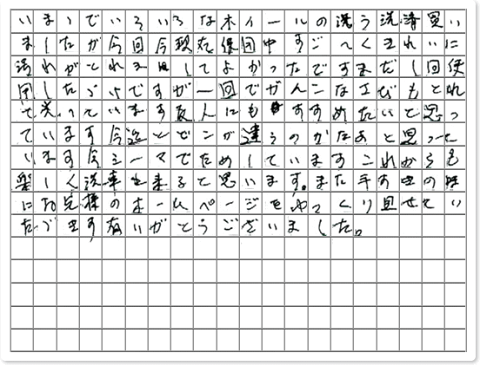 いままでいろいろなホイールの洗う洗清買い
ましたが今回今現在使回中すごーくきれいに
汚れがとれるしてよかったですまだし回使
用したゞけですが一回でがんこなよびもとれ
て洗っています友人にもすすめたいと思っ
ています今迄とどこが違うのかなあと思って
います今シーマでためしています これからも
楽しく洗車出来ると思います。また手すきの時
にお完様のホームページをゆっくり見せてい
たゞきますありがとうございました。